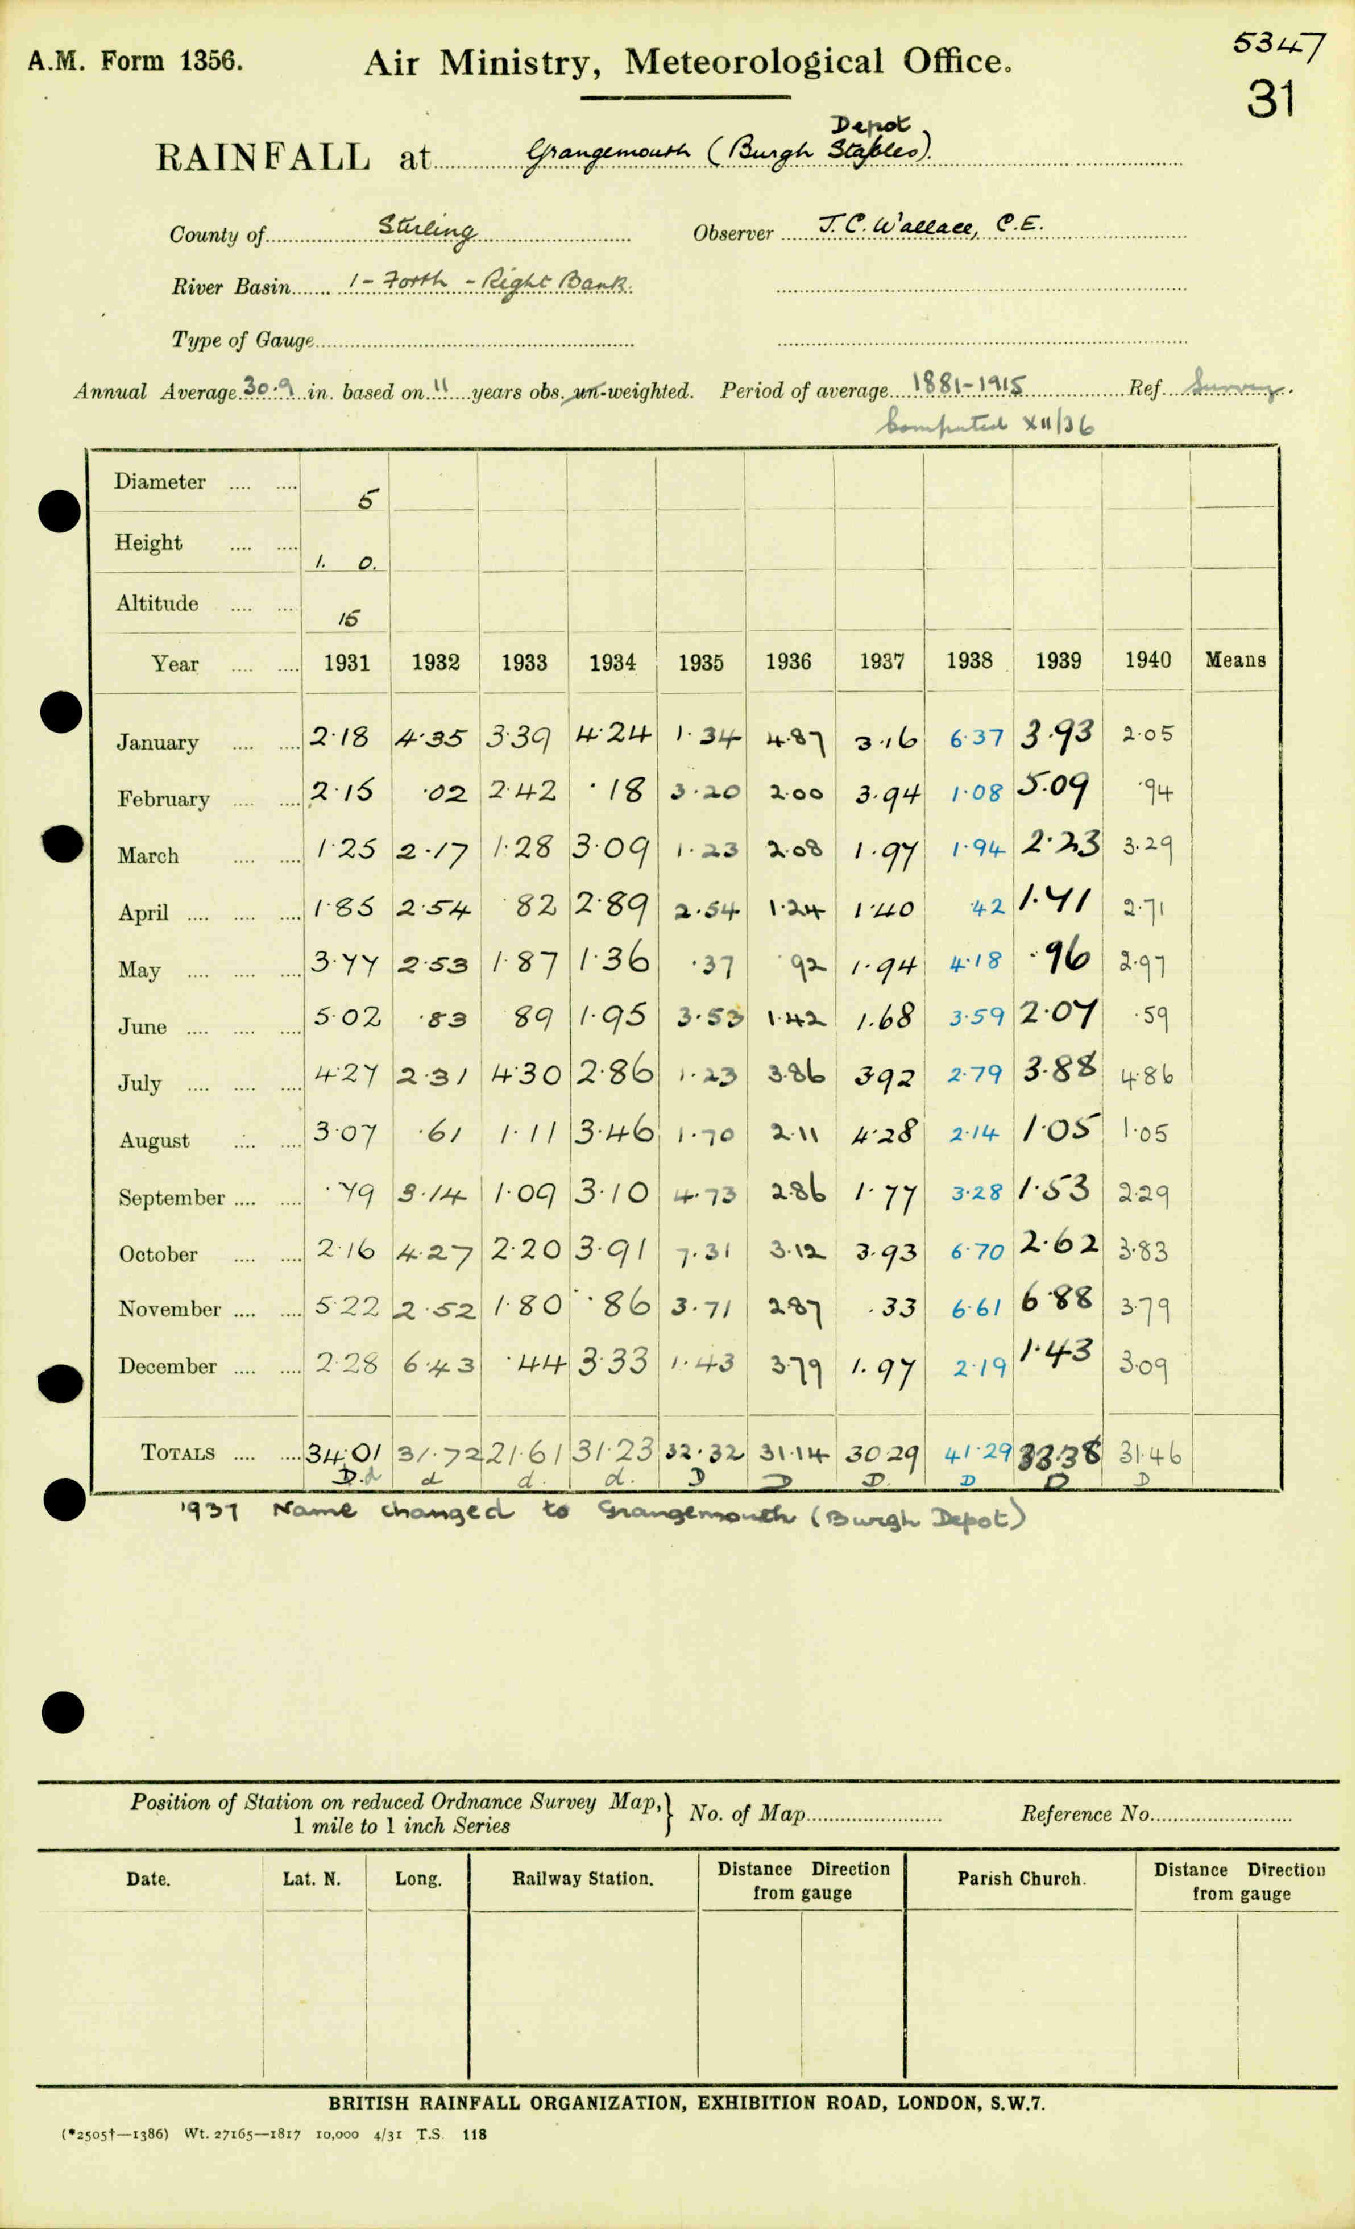 A.M. Form 1356.
Air Ministry, Meteorological Office.
5347
31
Depot
RAINFALL at Grangemouth (Burgh Stables).
County of Stirling Observer J.C. Wallace, C.E.
River Basin 1 - Forth - Right Bank.
Type of Gauge
Annual Average 30.9 in. based on 11 years obs. un-weighted. Period of average 1881-1915 Ref. Survey.
Computed XII/36
Diameter 5
Height 1. 0.
Altitude 15
Year 1931 1932 1933 1934 1935 1936 1937 1938 1939 1940 Means
January 2.18 4.35 3.39 4.24 1.34 4.87 3.16 6.37 3.93 2.05
February 2.15 .02 2.42 .18 3.20 2.00 3.94 1.08 5.09 .94
March 1.25 2.17 1.28 3.09 1.23 2.08 1.97 1.94 2.23 3.29
April 1.85 2.54 .82 2.89 2.54 1.24 1.40 .42 1.71 2.71
May 3.77 2.53 1.87 1.36 .37 .92 1.94 4.18 .96 2.97
June 5.02 .83 .89 1.95 3.53 1.42 1.68 3.59 2.07 .59
July 4.27 2.31 4.30 2.86 1.23 3.86 3.92 2.79 3.88 4.86
August 3.07 .61 1.11 3.46 1.70 2.11 4.28 2.14 1.05 1.05
September .79 3.14 1.09 3.10 4.73 2.86 1.77 3.28 1.53 2.29
October 2.16 4.27 2.20 3.91 7.31 3.12 3.93 6.70 2.62 3.83
November 5.22 2.52 1.80 .86 3.71 2.87 .33 6.61 6.88 3.79
December 2.28 6.43 .44 3.33 1.43 3.79 1.97 2.19 1.43 3.09
TOTALS 34.01 31.72 21.61 31.23 32.32 31.14 30.29 41.29 33.38 31.46
D.d d d. d. D D D. D D D
1937 Name changed to Grangemouth (Burgh Depot)
Position of Station on reduced Ordnance Survey Map, 1 mile to 1 inch Series } No. of Map Reference No.
Date. Lat. N. Long. Railway Station. Distance Direction from gauge Parish Church. Distance Direction from gauge
BRITISH RAINFALL ORGANIZATION, EXHIBITION ROAD, LONDON, S.W.7.
(*2505†—1386) Wt. 27165—1817 10,000 4/31 T.S. 118